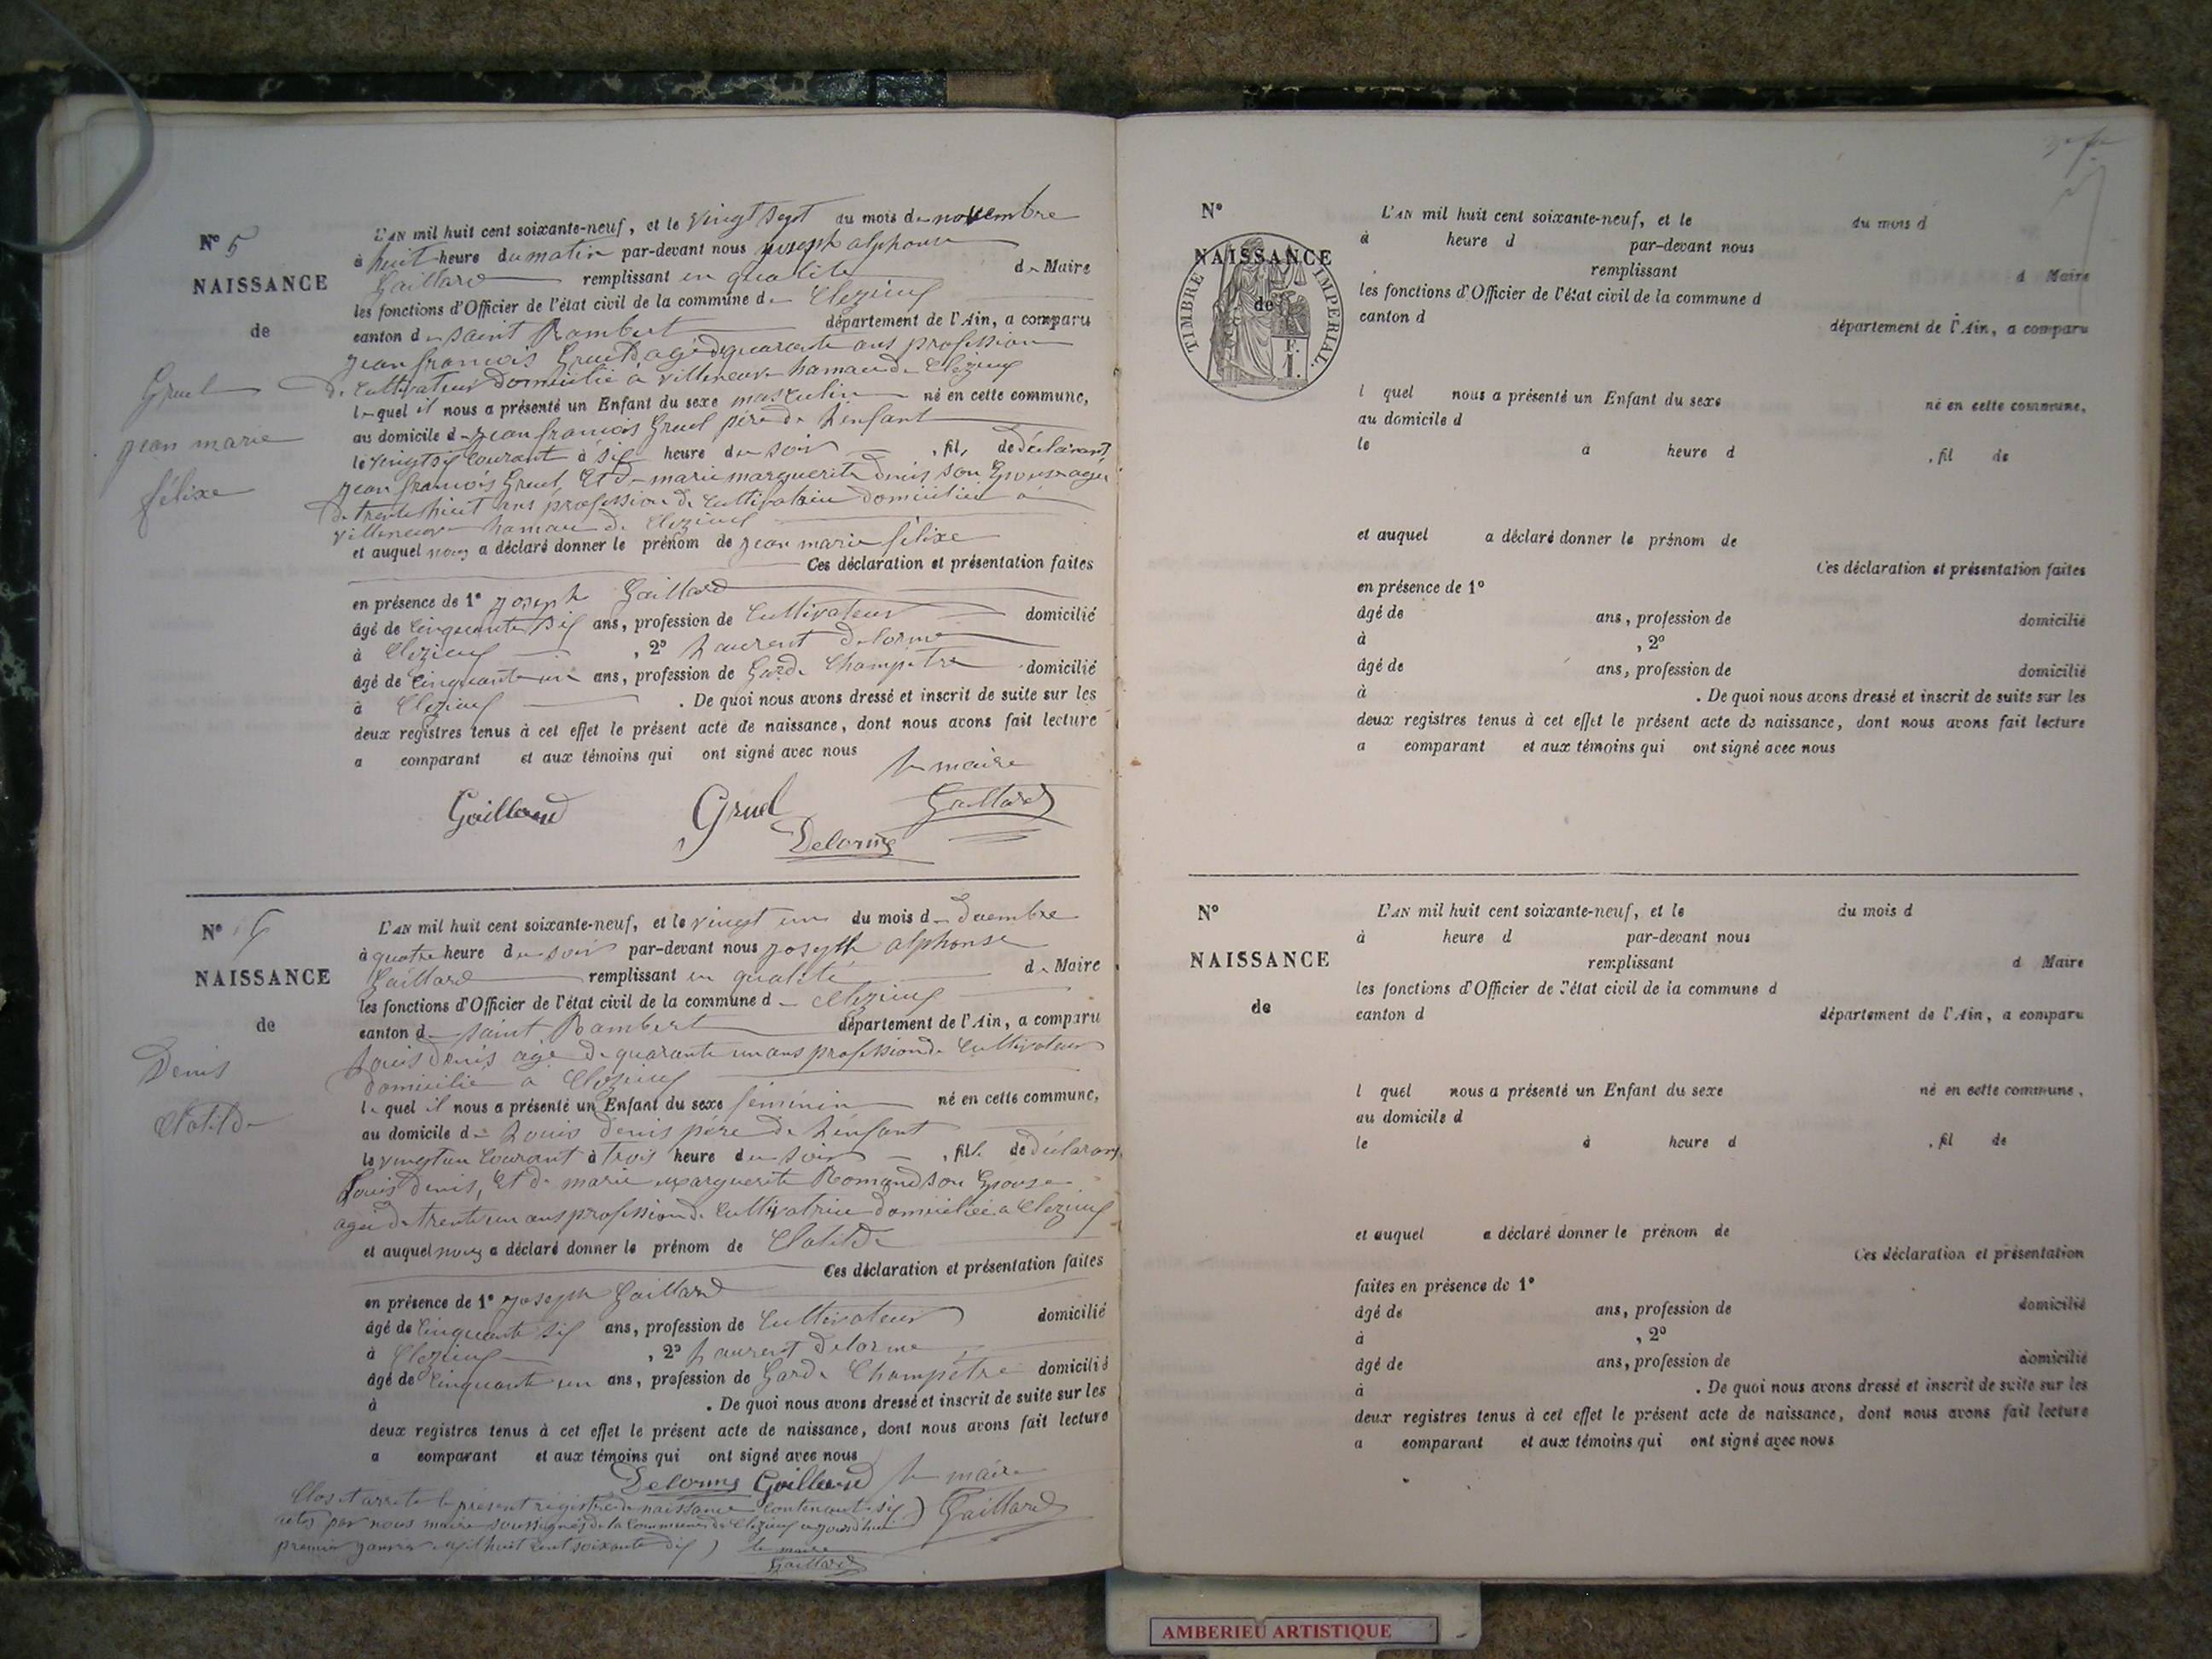 N° 5
NAISSANCE
de
Gruel
jean marie
félixe
L'AN mil huit cent soixante-neuf, et le vingt sept du mois de novembre
à huit heure du matin par-devant nous joseph alphonse
Gaillard remplissant en qualité de Maire
les fonctions d'Officier de l'état civil de la commune de Clezieux
canton de saint Rambert département de l'Ain, a comparu
jean francois Gruel agé de quarante ans profession
de Cultivateur Domicilié à villeneuve hamau de Clezieux
lequel il nous a présenté un Enfant du sexe masculin né en cette commune,
au domicile de jean francois Gruel père de Lenfant
le vingt six Courant à six heure du soir , fils de déclarant
jean francois Gruel, Et de marie marguerite Denis son Epouse agée
de trente huit ans profession de Cultivatrice domiciliée à
villeneuve hamau de Clezieux
et auquel nous a déclaré donner le prénom de jean marie félixe
Ces déclaration et présentation faites
en présence de 1° joseph Gaillard
âgé de Cinquante six ans, profession de Cultivateur domicilié
à Clezieux , 2° Laurent Delorme
âgé de Cinquante un ans, profession de Garde Champetre domicilié
à Clezieux . De quoi nous avons dressé et inscrit de suite sur les
deux registres tenus à cet effet le présent acte de naissance, dont nous avons fait lecture
a comparant et aux témoins qui ont signé avec nous
le maire
Gaillard Gruel Gaillard
Delorme
N° 6
NAISSANCE
de
Denis
Clotilde
L'AN mil huit cent soixante-neuf, et le vingt un du mois de Decembre
à quatre heure du soir par-devant nous joseph alphonse
Gaillard remplissant en qualité de Maire
les fonctions d'Officier de l'état civil de la commune de Clezieux
canton de saint Rambert département de l'Ain, a comparu
Louis Denis agé de quarante un ans profession de Cultivateur
domicilié a Clezieux
lequel il nous a présenté un Enfant du sexe féminin né en cette commune,
au domicile de Louis Denis père de Lenfant
le vingt un Courant à trois heure du soir , fille de déclarant
Louis Denis, Et de marie marguerite Romand son Epouse
agée de trente un ans profession de Cultivatrice domiciliée a Clezieux
et auquel nous a déclaré donner le prénom de Clotilde
Ces déclaration et présentation faites
en présence de 1° joseph Gaillard
âgé de Cinquante six ans, profession de Cultivateur domicilié
à Clezieux , 2° Laurent Delorme
âgé de Cinquante un ans, profession de Garde Champêtre domicilié
à . De quoi nous avons dressé et inscrit de suite sur les
deux registres tenus à cet effet le présent acte de naissance, dont nous avons fait lecture
a comparant et aux témoins qui ont signé avec nous
Delorme Gaillard le maire
Clos et arrete le présent registre de naissance Contenant six
actes par nous maire soussignés de la Commune de Clezieux aujourd'hui Gaillard
premier janvier mil huit cent soixante dix le maire
Gaillard
N°
NAISSANCE
de
TIMBRE IMPERIAL.
L'AN mil huit cent soixante-neuf, et le du mois d
à heure d par-devant nous
remplissant d Maire
les fonctions d'Officier de l'état civil de la commune d
canton d département de l'Ain, a comparu
l quel nous a présenté un Enfant du sexe né en cette commune,
au domicile d
le à heure d , fil de
et auquel a déclaré donner le prénom de
Ces déclaration et présentation faites
en présence de 1°
âgé de ans, profession de domicilié
à , 2°
âgé de ans, profession de domicilié
à . De quoi nous avons dressé et inscrit de suite sur les
deux registres tenus à cet effet le présent acte de naissance, dont nous avons fait lecture
a comparant et aux témoins qui ont signé avec nous
N°
NAISSANCE
de
L'AN mil huit cent soixante-neuf, et le du mois d
à heure d par-devant nous
remplissant d Maire
les fonctions d'Officier de l'état civil de la commune d
canton d département de l'Ain, a comparu
l quel nous a présenté un Enfant du sexe né en cette commune,
au domicile d
le à heure d , fil de
et auquel a déclaré donner le prénom de
Ces déclaration et présentation
faites en présence de 1°
âgé de ans, profession de domicilié
à , 2°
âgé de ans, profession de domicilié
à . De quoi nous avons dressé et inscrit de suite sur les
deux registres tenus à cet effet le présent acte de naissance, dont nous avons fait lecture
a comparant et aux témoins qui ont signé avec nous
AMBERIEU ARTISTIQUE